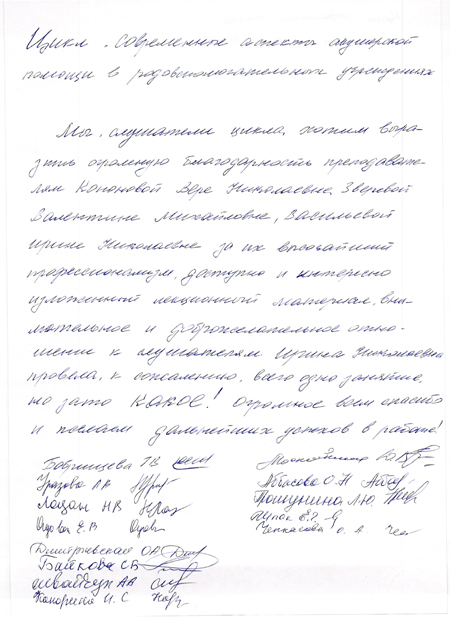 Цикл „Современные аспекты акушерской
помощи в родовспомогательных учреждениях
Мы, слушатели цикла, хотим выра-
зить огромную благодарность преподавате-
лям Кононовой Вере Николаевне, Зверевой
Валентине Михайловне, Васильевой
Ирине Николаевне за их высочайший
профессионализм, доступно и интересно
изложенный лекционный материал, вни-
мательное и доброжелательное отно-
шение к слушателям. Ирина Николаевна
провела, к сожалению, всего одно занятие,
но зато КАКОЕ! Огромное всем спасибо
и желаем дальнейших успехов в работе!
Т В
Уразова А А Аббасова О. Н
Н В Прошунина Л.Ю.
Е. В
О. А.
Дмитриевская О.А.
Байкова С В
А А
И. С